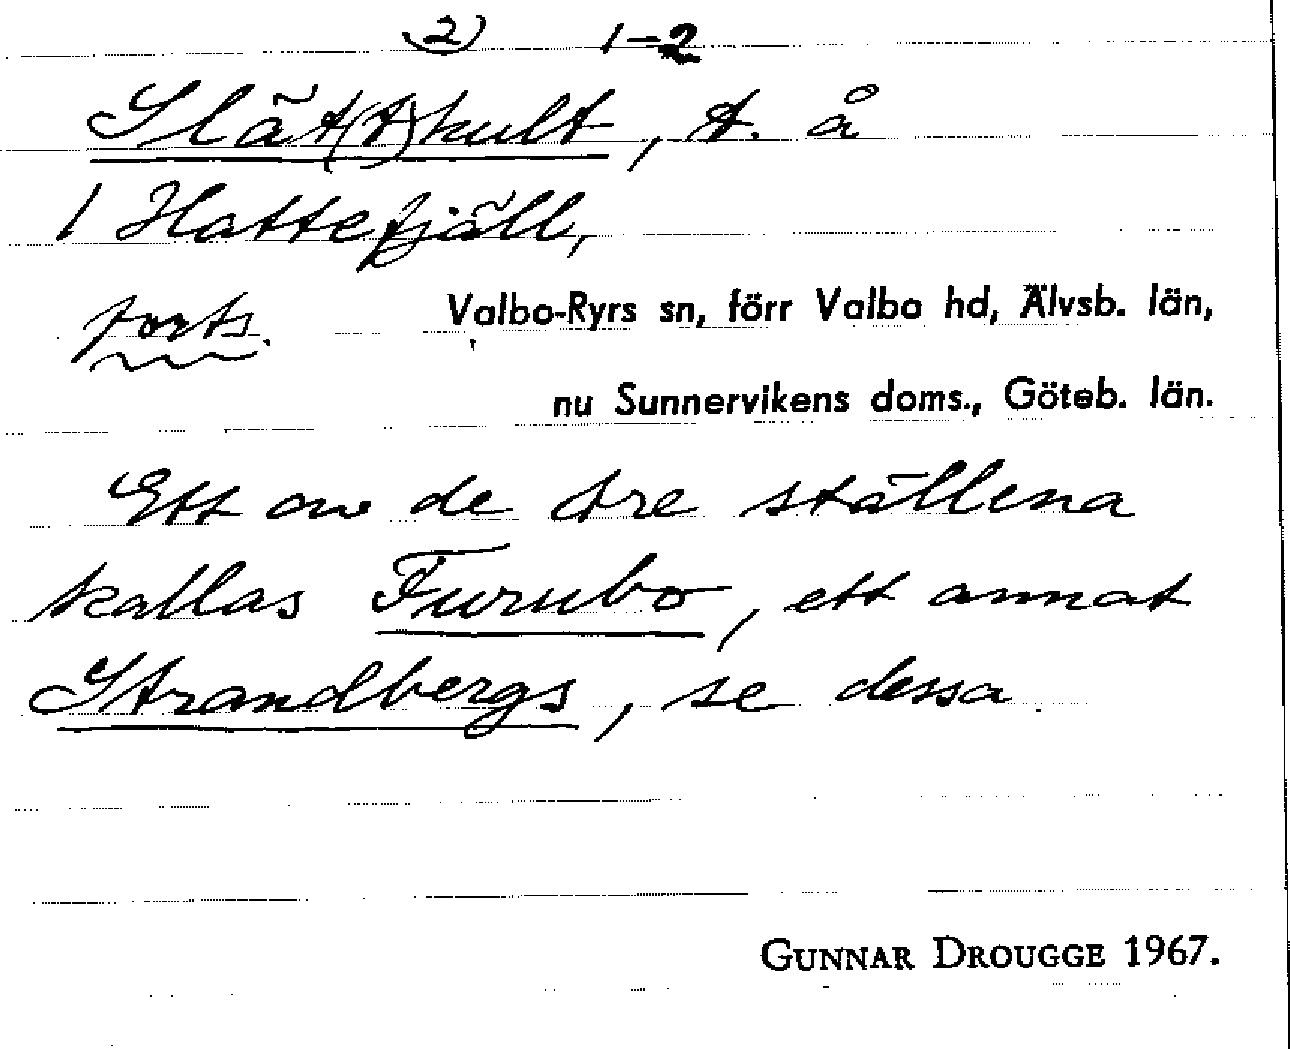 (2) 1-2
Slät(t)hult, t. å
1 Hattefjäll,
forts.
Valbo-Ryrs sn, förr Valbo hd, Älvsb. län,
nu Sunnervikens doms., Göteb. län.
Ett av de tre ställena
kallas Furubo, ett annat
Strandbergs, se dessa.
GUNNAR DROUGGE 1967.